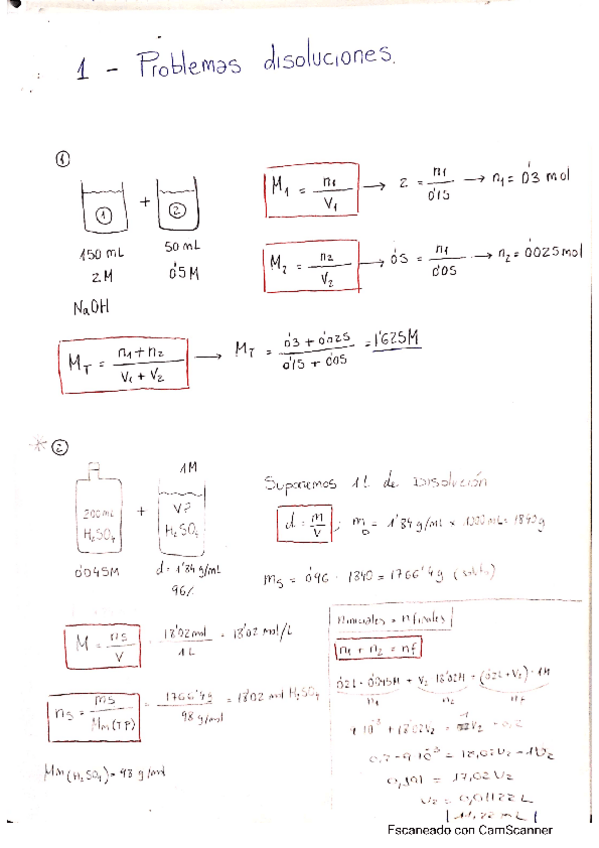 1 - Problemas disoluciones.
①
① + ②
150 mL 50 mL
2M 0'5M
NaOH
M₁ = n₁/V₁ → 2 = n₁/0'15 → n₁ = 0'3 mol
M₂ = n₂/V₂ → 0'5 = n₁/0'05 → n₂ = 0'025 mol
M_T = n₁+n₂/V₁+V₂ → M_T = 0'3 + 0'025/0'15 + 0'05 = 1'625M
* ②
1M
200mL H₂SO₄ + V? H₂SO₄
0'045M d = 1'84 g/mL
96%
Suponemos 1L de Disolución
d = m/V ; m_D = 1'84 g/mL × 1000mL = 1840 g
m_s = 0'96 · 1840 = 1766'4 g (soluto)
M = n_s/V = 18'02 mol/1L = 18'02 mol/L
n_s = m_s/Mm(TP) = 1766'4 g/98 g/mol = 18'02 mol H₂SO₄
Mm(H₂SO₄) = 98 g/mol
n iniciales = n finales
n₁ + n₂ = nf
0,2L · 0'045M + V₂ · 18'02M = (0,2L + V₂) · 1M
n₁ n₂ nf
9·10⁻³ + 18'02V₂ = V₂ + 0,2
0,2 - 9·10⁻³ = 18,02V₂ - 1V₂
0,191 = 17,02 V₂
V₂ = 0,01122L
11,22 mL
Escaneado con CamScanner